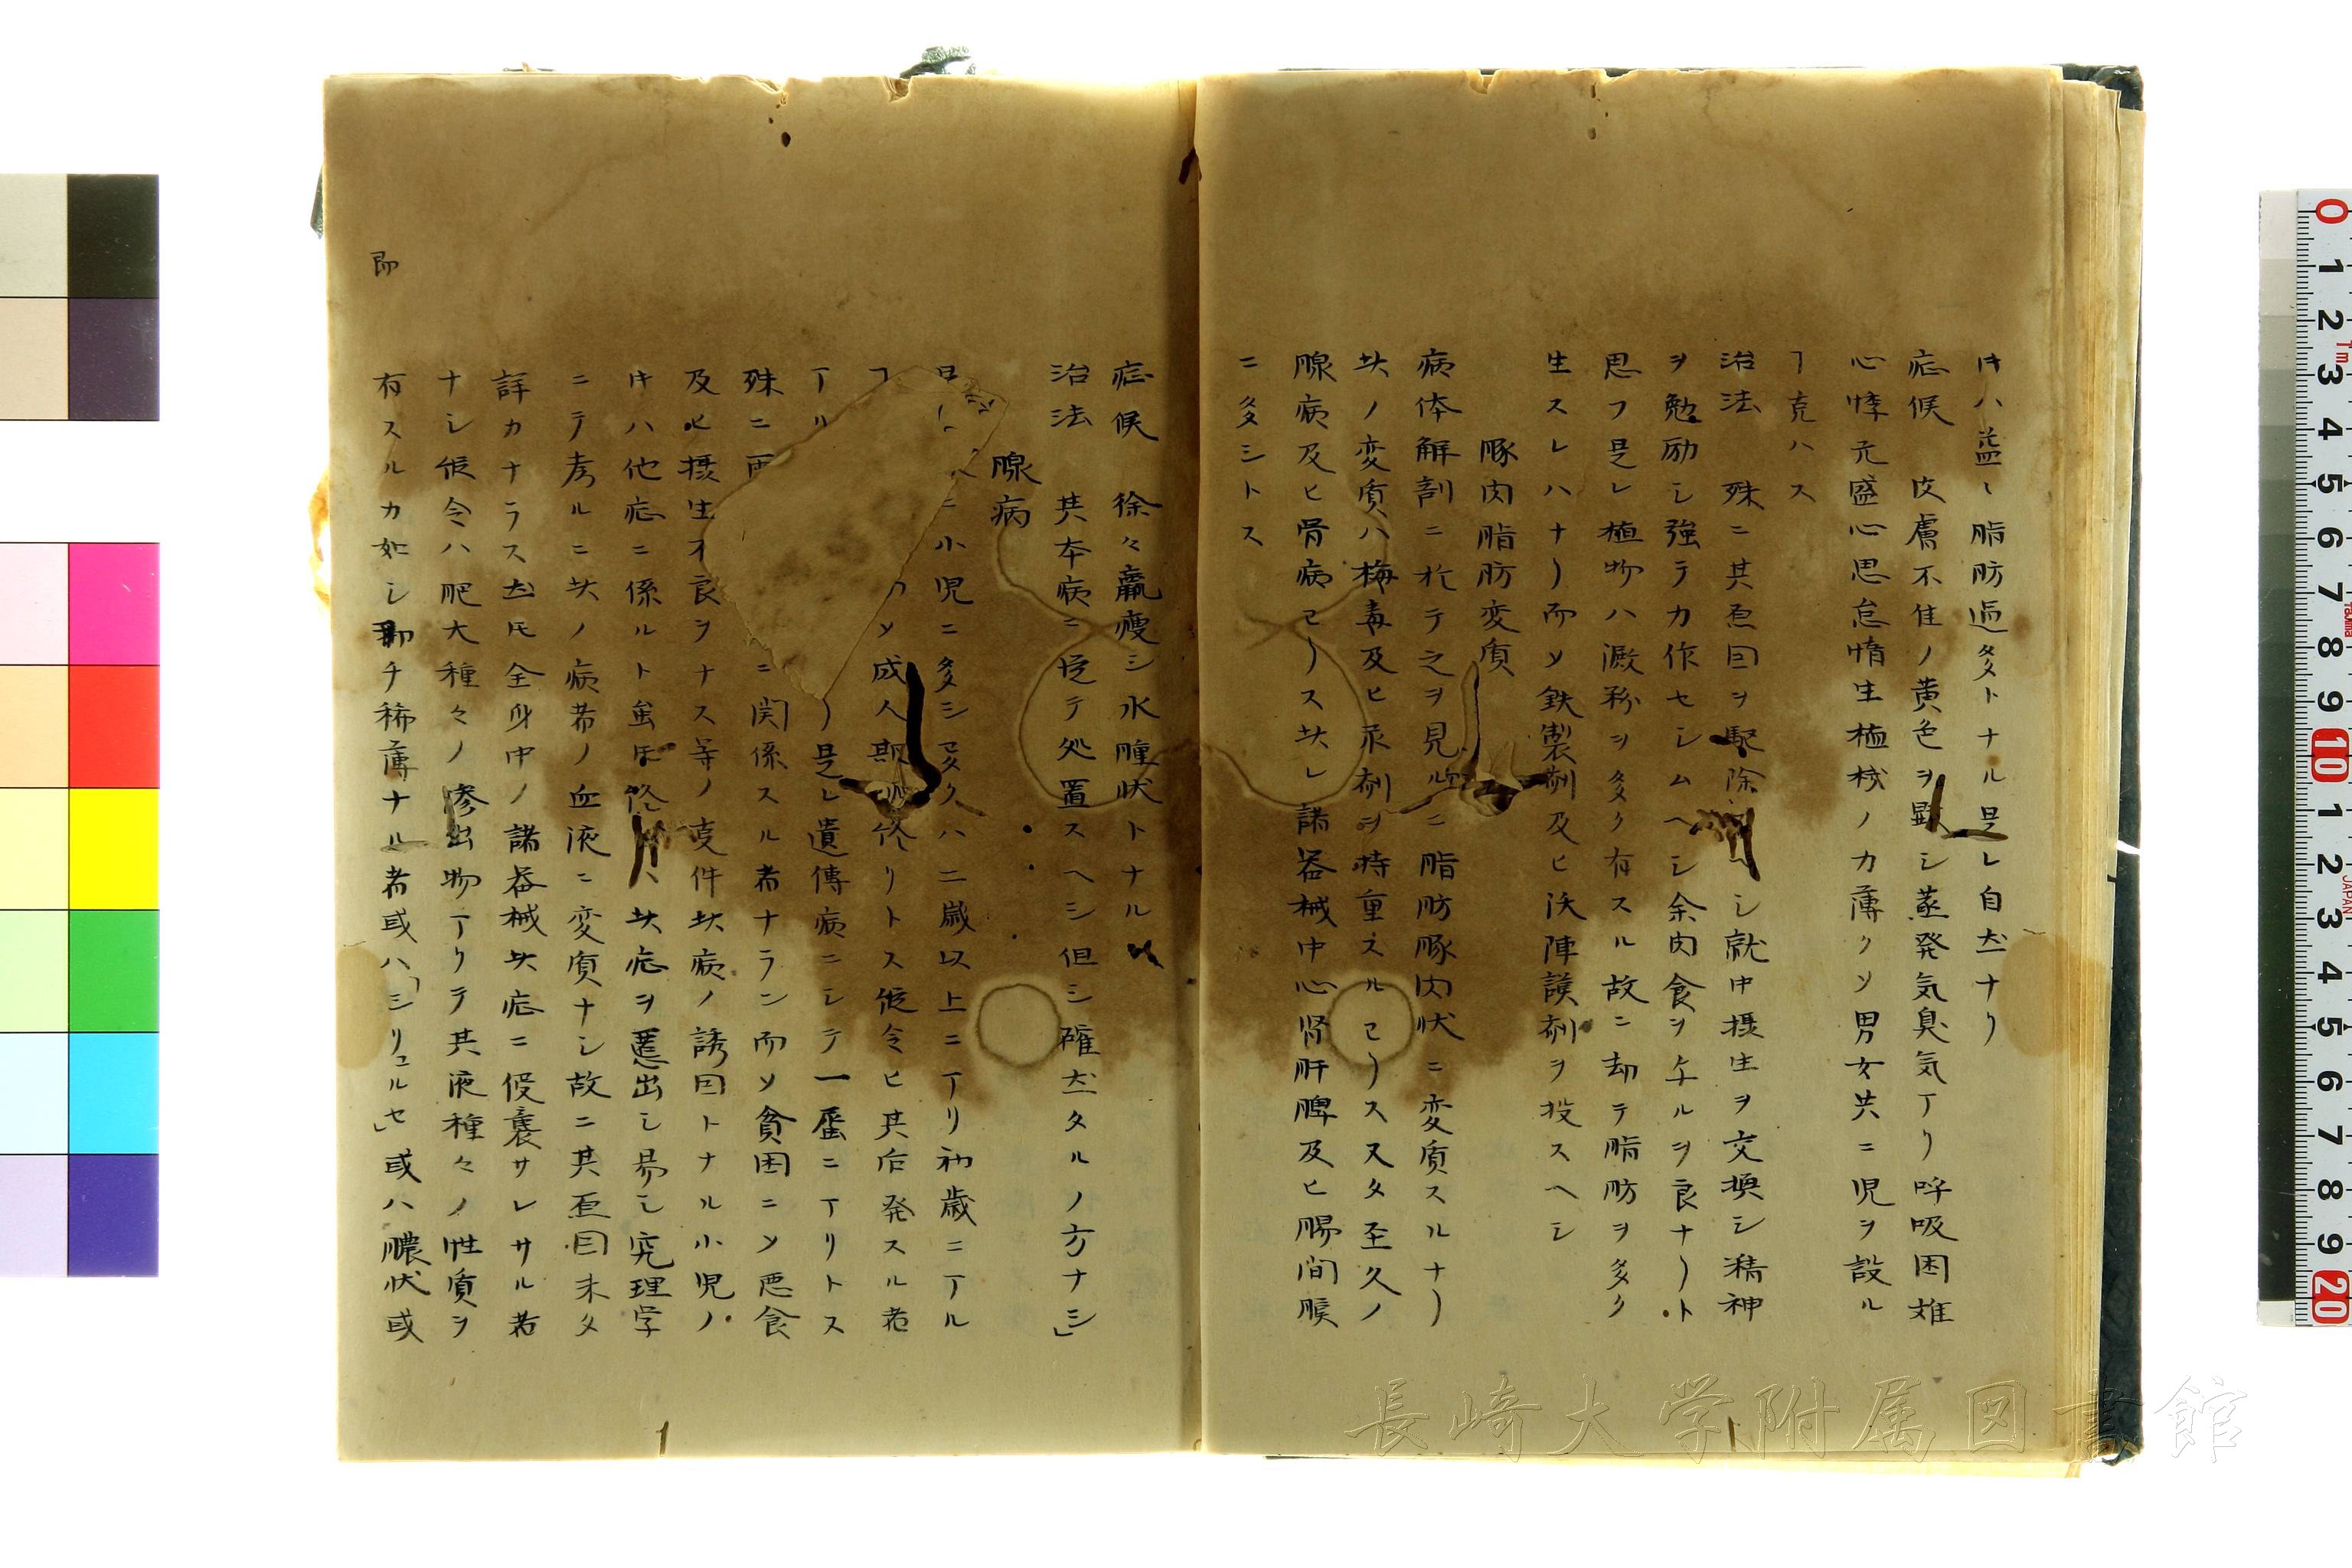 キハ益〻脂肪過多トナル是レ自然ナリ
症候 皮膚不佳ノ黄色ヲ顕シ蒸発気臭気アリ呼吸困難
心悸亢盛心思怠惰生植械ノ力薄クソ男女共ニ児ヲ設ル
ヿ克ハス
治法 殊ニ其原因ヲ駆除シ就中摂生ヲ交換シ精神
ヲ勉励シ強テ力作セシムヘシ余肉食ヲ与ルヲ良ナリト
思フ是レ植物ハ澱粉ヲ多ク有スル故ニ却テ脂肪ヲ多ク
生スレハナリ而ソ鉄製剤及ヒ沃陣謨剤ヲ投スヘシ
豚肉脂肪変質
病体解剖ニ於テ之ヲ見ルニ脂肪豚肉状ニ変質スルナリ
此ノ変質ハ梅毒及ヒ汞剤ヲ持重スルニリス又タ至久ノ
腺病及ヒ骨病ニリス此レ諸器械中心腎肝脾及ヒ腸間膜
ニ多シトス
症候 徐々羸痩シ水腫状トナル
治法 其本病ニ従テ処置スヘシ但シ確然タルノ方ナシ」
腺病
ニ小児ニ多シ多クハ二歳以上ニアリ初歳ニアル
ヿ ソ成人期 リトス仮令ヒ其后発スル者
アル リ是レ遺傳病ニシテ一層ニアリトス
殊ニ両 ニ関係スル者ナラン而ソ貧困ニソ悪食
及ヒ摂生不良ヲナス等ノ更件此病ノ誘因トナル小児ノ
キハ他症ニ係ルト雖𪜈 ハ此症ヲ遷出シ易シ究理学
ニテ考ルニ此ノ病者ノ血液ニ変質ナシ故ニ其原因未タ
詳カナラス然𪜈全身中ノ諸器械此症ニ侵襲サレサル者
ナシ仮令ハ肥大種々ノ滲出物アリテ其液種々ノ性質ヲ
即
有スルカ如シ即チ稀薄ナル者或ハ「シリュルセ」或ハ膿状或
長崎大学附属図書館